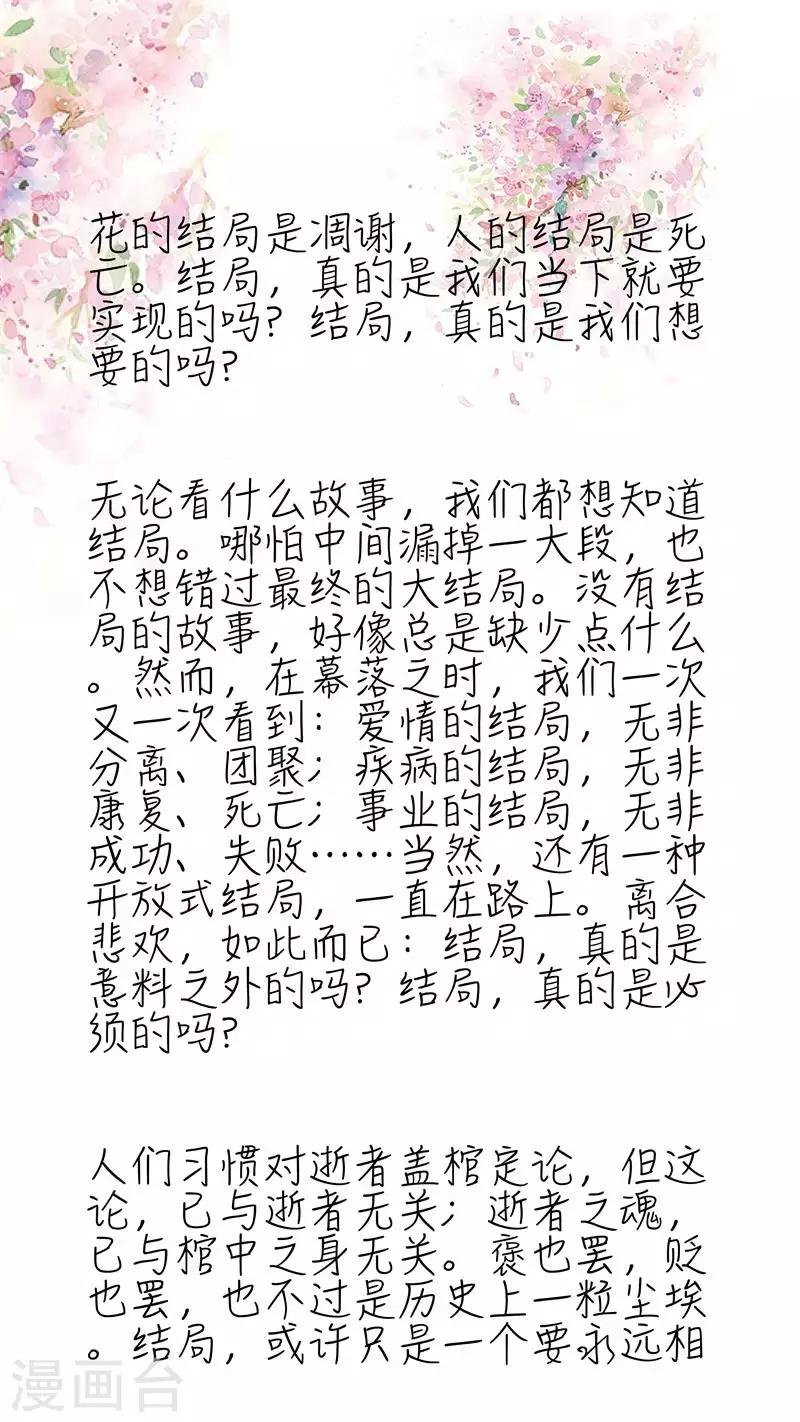 花的结局是凋谢，人的结局是死
亡。结局，真的是我们当下就要
实现的吗？结局，真的是我们想
要的吗？
无论看什么故事，我们都想知道
结局。哪怕中间漏掉一大段，也
不想错过最终的大结局。没有结
局的故事，好像总是缺少点什么
。然而，在幕落之时，我们一次
又一次看到：爱情的结局，无非
分离、团聚；疾病的结局，无非
康复、死亡；事业的结局，无非
成功、失败……当然，还有一种
开放式结局，一直在路上。离合
悲欢，如此而已：结局，真的是
意料之外的吗？结局，真的是必
须的吗？
人们习惯对逝者盖棺定论，但这
论，已与逝者无关；逝者之魂，
已与棺中之身无关。褒也罢，贬
也罢，也不过是历史上一粒尘埃
。结局，或许只是一个要永远相
漫画台